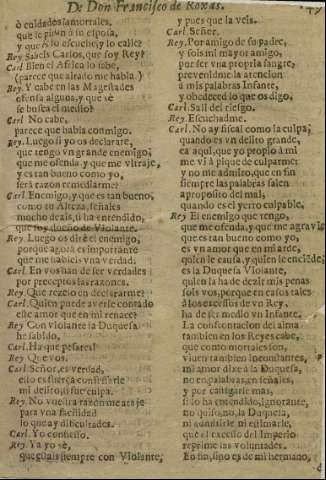 De Don Francisco de Roxas.
ò cuidades la morales,
que le
y que èl lo escuche, y lo calle?
Rey. Sabeis Carlos, que soy Rey?
Carl. Bien el Africa lo sabe,
(parece que airado me habla.)
Rey. Y cabe en las Magestades
ofensa alguna, y que se
se busca el medio?
Carl. No cabe,
parece que habla conmigo.
Rey. Luego si yo os declarare,
que tengo vn grande enemigo,
que me ofenda, y que me vltraje,
y es tan bueno como yo,
serà razon remediarme?
Carl. Enemigo, y que es tan bueno,
como su Alteza, señales
mucho dezis, si ha entendido,
que soy dueño de Violante.
Rey. Luego os dirè el enemigo,
porque agora es importante
que me hableis vna verdad.
Carl. En vos han de ser verdades
por preceptos las razones.
Rey. Que rezelo en declararme?
Carl. Quien puede averle contado
este amor que en mi renace?
Rey. Con Violante la Duquesa
he sabido.
Carl. Ha que pesares!
Rey. Que vos.
Carl. Señor, es verdad,
esto es fuerça confessarle
mi delito, si fue culpa.
Rey. No vuestra razon me ataje
para vna facilidad
lo que ay dificultades.
Carl. Yo confiesso.
Rey. Ya yo sè,
que estais siempre con Violante,
y pues que la veis.
Carl. Señor.
Rey. Por amigo de su padre,
y sois mi mayor amigo,
por ser vna propria sangre,
prevenidme la atencion
à mis palabras Infante,
y obedeced lo que os digo.
Carl. Salí del riesgo.
Rey. Escuchadme.
Carl. No ay fiscal como la culpa;
quando es vn delito grande,
ea aqui que yo propio à mi
me vi à pique de culparme;
y no me admiro, que en fin
siempre las palabras salen
a proposito del mal,
quando es el yerro culpable.
Rey El enemigo que tengo,
que me ofenda, y que me agravie
que es tan bueno como yo,
es vn amor que en mi arde;
quien le causa, y quien le enciēde,
es la Duquesa Violante,
quien la ha de dezir mis penas
sois vos, porque en casos tales
à los excessos de vn Rey,
ha de ser medio vn Infante.
La consternacion del alma
tambien en los Reyes cabe,
que como mortales son,
viuen tambien incōnstantes,
mi amor dixe à la Duquesa,
no en palabras, en señales,
y por castigarle mas,
ò lo ha entendido, ignorante,
no quiso, no, la Duquesa,
ni admitirle ni estimarle,
que el excesso del Imperio
reprime las voluntades.
En fin, sino es de mi hermano,